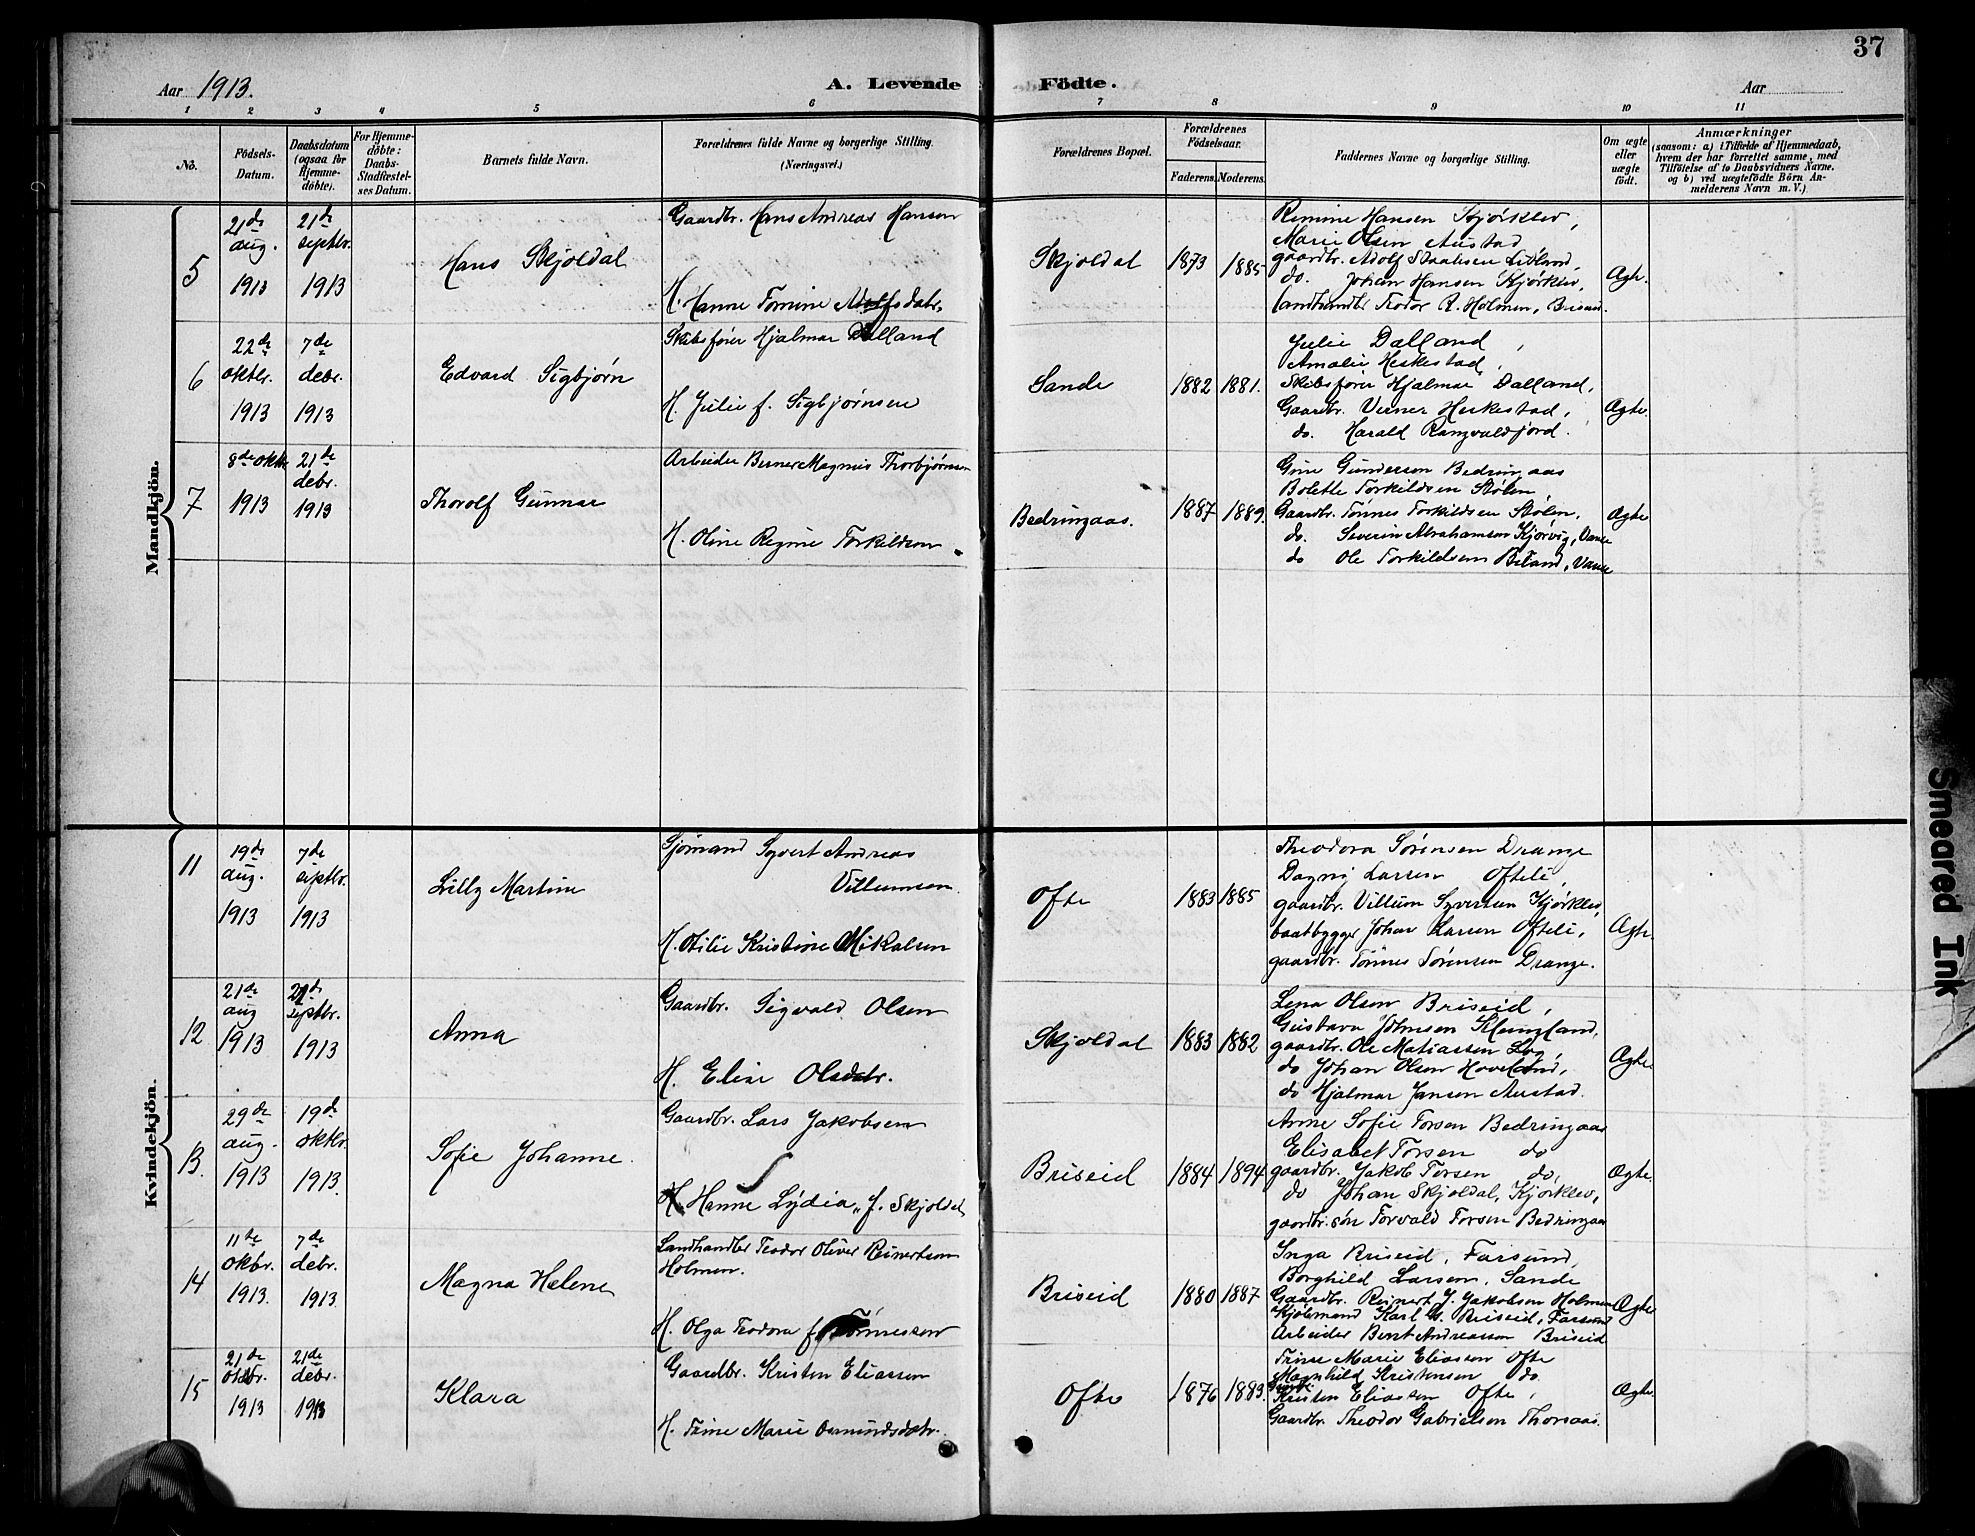 37
Aar 1913.
A. Levende Födte.
Aar
1 2 3 4 5 6 7 8 9 10 11
No.
Födsels-Datum.
Daabsdatum (ogsaa for Hjemme-döbte).
For Hjemme-döbte: Daabs-Stadfæstel-ses Datum.
Barnets fulde Navn.
Forældrenes fulde Navne og borgerlige Stilling. (Næringsvei.)
Forældrenes Bopæl.
Forældrenes Födselsaar.
Faderens. Moderens.
Faddernes Navne og borgerlige Stilling.
Om ægte eller uægte födt.
Anmærkninger
(saasom: a) i Tilfælde af Hjemmedaab,
hvem der har forrettet samme, med
Tilföielse af to Daabsvidners Navne.
og b) ved uægtefödte Börn An-
melderens Navn m. V.)
Mandkjön.
5
21de aug. 1913
21de septbr. 1913
Hans Skjoldal
Gaardbr. Hans Andreas Hansen
H. Hanne Tomine Adolfsdatr.
Skjoldal
1873 1885
Remine Hansen Kjørklev,
Marie Olsen Austad
gaardbr. Adolf
do. Johan Hansen Kjørklev,
landhandler Teodor R. Holmen, Briseid.
Ægte.
6
22de oktbr. 1913
7de debr. 1913
Edvard Sigbjørn
Skibsfører Hjalmar Dalland
H. Julie f. Sigbjørnsen
Sande
1882 1881.
Julie Dalland,
Amalie Heskestad,
Skibsfører Hjalmar Dalland,
Gaardbr. Verner Heskestad,
do. Harald Rangvaldfjord.
Ægte.
7
8de oktbr 1913
21de debr. 1913
Thorolf Gunnar
Arbeider Berner Magnus Thorbjørnsen
H. Oline Regine Torkildsen
Bedringaas.
1887 1889.
Gine Gundersen Bedringaas
Bolette Torkildsen Stølen,
Gaardbr. Tønnes Torkildsen Stølen,
do. Severin Abrahamsen Kjørvig, Vanse
do Ole Torkildsen Briland, Vanse
Ægte
Kvindekjön.
11
19de aug. 1913
7de septbr. 1913
Lilly Martine
Sjømand Syvert Andreas
Villumsen.
H. Otilie Kristine Mikalsen
Ofte
1883 1885
Theodora Sørensen Drange
Dagny Larsen Ofteli,
gaardbr. Villum Syvertsen Kjørklev,
baatbygger Johan Larsen Ofteli,
gaardbr. Tønnes Sørensen Drange.
Ægte.
12
21de aug 1913
21de septbr. 1913
Anna
Gaardbr. Sigvald Olsen
H. Elise Olsdatr.
Skjoldal
1883 1882
Lena Olsen Briseid,
Gustava Johnsen Klungland,
gaardbr. Ole Matiassen
do Johan Olsen Hoveland,
do Hjalmar Jansen Austad.
Ægte
13.
29de aug. 1913
19de oktbr 1913.
Sofie Johanne.
Gaardbr. Lars Jakobsen
H. Hanne Lydia, f. Skjoldal
Briseid
1884 1894
Anne Sofie Torsen Bedringaas
Elisabet Torsen do
gaardbr. Jakob Torsen do,
do Johan Skjoldal, Kjørklev,
gaardbr.søn Torvald Torsen Bedringaas
Ægte.
14
11te oktbr. 1913.
7de debr. 1913.
Magna Helene
Landhandler Teodor Oliver Reinertsen
Holmen.
H. Olga Teodora f. Tønnessen
Briseid
1880 1887
Inga Briseid, Farsund,
Borghild Larsen, Sande
Gaardbr. Reinert J. Jakobsen Holmen
Kjøbmand Karl G. Briseid, Farsund
Arbeider Bernt Andreassen Briseid
Ægte
15
21de oktbr. 1913
21de debr. 1913
Klara
Gaardbr. Kristen Eliassen
H. Trine Marie Osmundsdatr.
Ofte
1876 1883.
Trine Marie Eliassen Ofte
Magnhild Kristensen do.
Gaardbr. Kristen Eliassen Ofte,
Gaardbr. Theodor Gabrielsen Thorsaas.
Ægte.
Smeared Ink